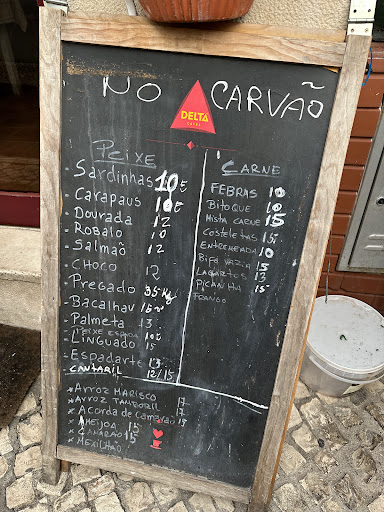 NO CARVÃO
DELTA
CAFÉS
PEIXE
- Sardinhas 10€
- Carapaus 10€
- Dourada 12
- Robalo 12
- Salmão 12
- Choco 12
- Pregado 35 Kg
- Bacalhau 15
- Palmeta 13
- PEIXE ESPADA 10€
- Linguado 15
- Espadarte 13
- CANTARIL 12/15
CARNE
FEBRAS 10
BITOQUE 10
Mista CARNE 15
Costeletas 15
ENTREMEADA 10
Bife 15
LAGARTOS 13
PICANHA 15
FRANGO
* ARROZ MARISCO 17
* ARROZ TAMBORIL 17
* Acorda de Camarão 15
* AMEIJOA 15
* CAMARÃO 15
* MEXILHÃO
DELTA